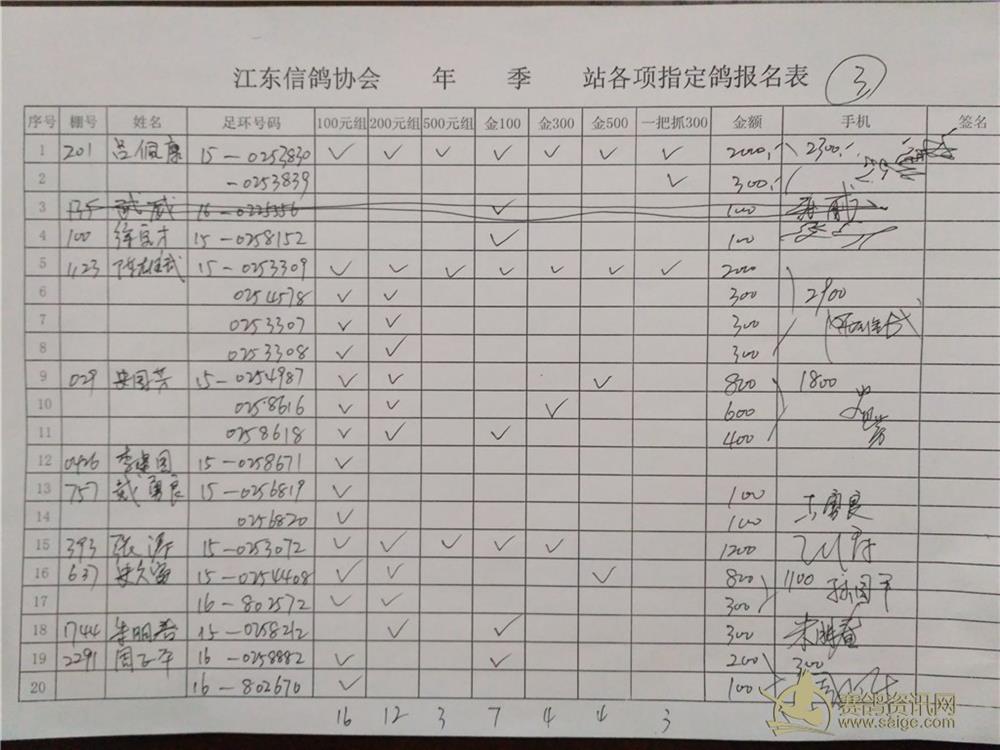 江东信鸽协会 年 季 站各项指定鸽报名表 3
序号 棚号 姓名 足环号码 100元组 200元组 500元组 金100 金300 金500 一把抓300 金额 手机 签名
1 201 吕佩康 15-0253830 ✓ ✓ ✓ ✓ ✓ ✓ ✓ 2000 2300
2 -0253839 ✓ 300
3 威 16-0225556 ✓ 100
4 100 徐良才 15-0258152 ✓ 100
5 1123 陈雄武 15-0253309 ✓ ✓ ✓ ✓ ✓ ✓ ✓ 2000
6 0254578 ✓ ✓ 300 2900
7 0253307 ✓ ✓ 300
8 0253308 ✓ ✓ 300
9 029 15-0254987 ✓ ✓ ✓ 800 1800
10 0258616 ✓ ✓ ✓ 600
11 0258618 ✓ ✓ ✓ 400
12 0426 李建国 15-0258671 ✓
13 757 戴勇良 15-0256819 ✓ 100
14 0256820 ✓ 100
15 393 张涛 15-0253072 ✓ ✓ ✓ ✓ ✓ 1200
16 637 15-0254408 ✓ ✓ ✓ 800 1100
17 16-802572 ✓ ✓ 300
18 1744 朱明春 15-0258212 ✓ ✓ 300 朱明春
19 2291 周 平 16-0258882 ✓ ✓ 200 300
20 16-802670 ✓ 100
16 12 3 7 4 4 3
赛鸽资讯网
www.saige.com